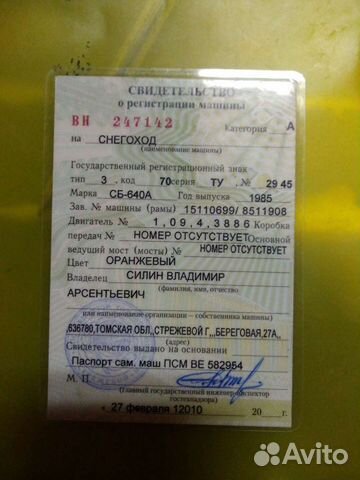 СВИДЕТЕЛЬСТВО
о регистрации машины
ВН 247142
Категория А
на СНЕГОХОД
(наименование машины)
Государственный регистрационный знак
тип 3 . код 70 серия ТУ . № 29 45
Марка СБ-640А Год выпуска 1985
Зав. № машины (рамы) 15110699/ 8511908
Двигатель № 1,09.4,3886 Коробка
передач № НОМЕР ОТСУТСТВУЕТ Основной
ведущий мост (мосты) № НОМЕР ОТСУТСТВУЕТ
Цвет ОРАНЖЕВЫЙ
Владелец СИЛИН ВЛАДИМИР
АРСЕНТЬЕВИЧ
(фамилия, имя, отчество
или наименование организации — собственника машины)
,636780,ТОМСКАЯ ОБЛ,,СТРЕЖЕВОЙ Г,,,БЕРЕГОВАЯ,27А,,
(адрес)
Свидетельство выдано на основании
Паспорт сам. маш ПСМ ВЕ 582954
М. П.
(Главный государственный инженер-инспектор
гостехнадзора)
« 27 февраля 12010 20 г.
Avito